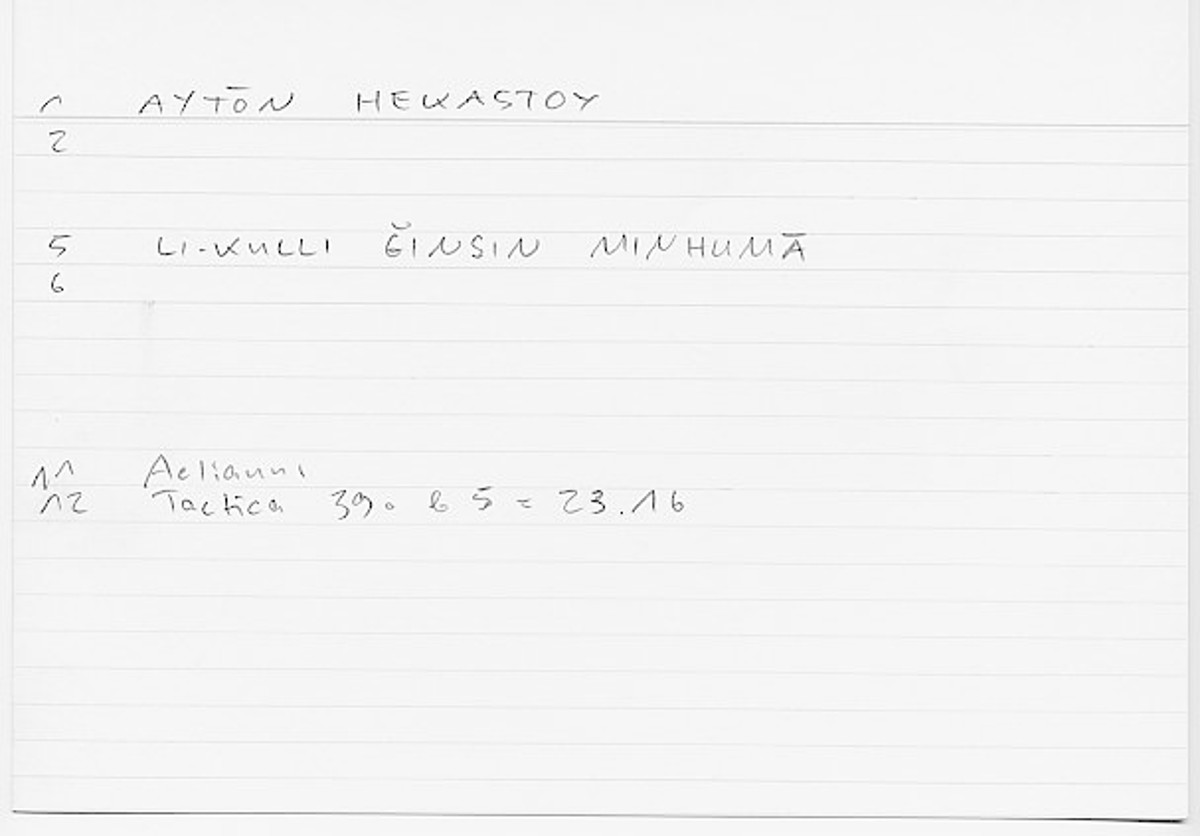 1 AYTŌN HEKASTOY
2
5 LI-KULLI ǦINSIN MINHUMĀ
6
11 Aeliani
12 Tactica 390 b 5 = 23.16